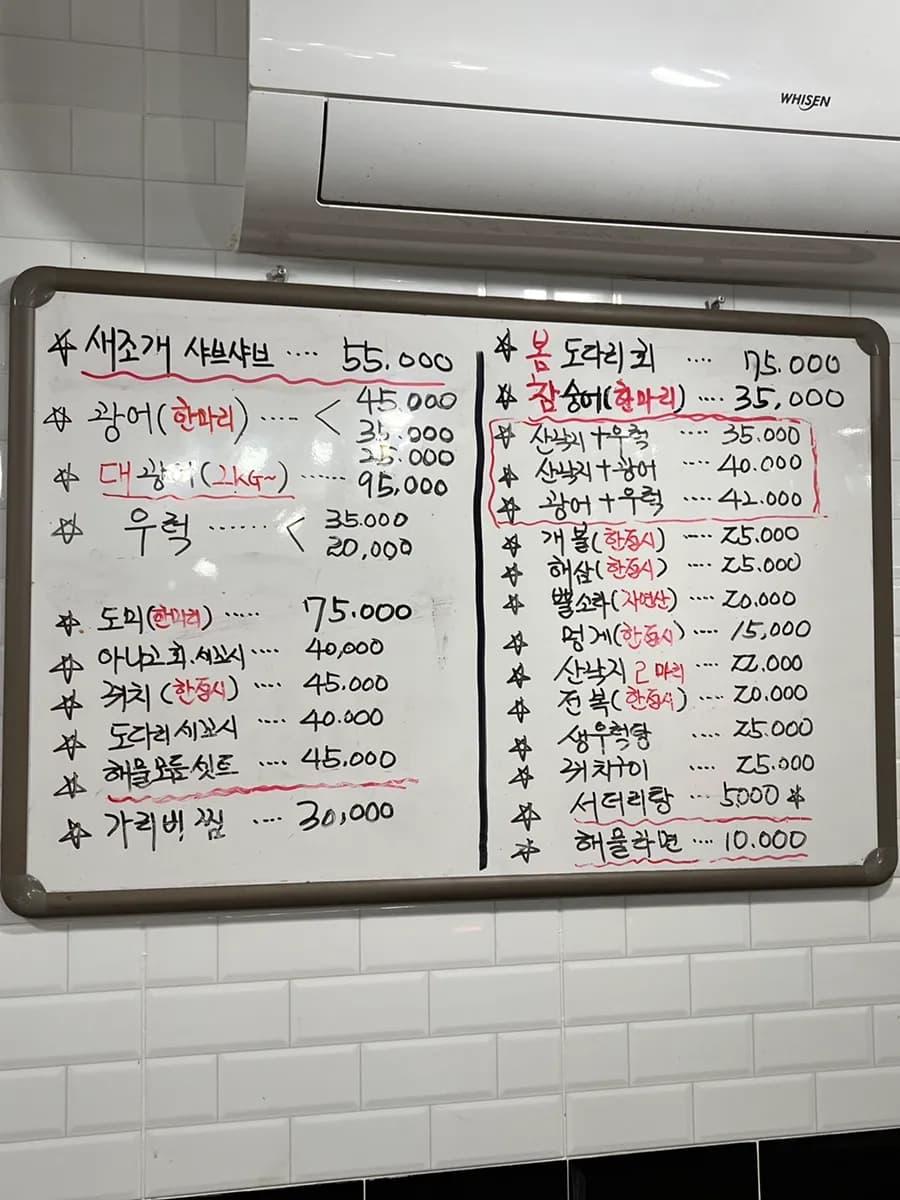 WHISEN
☆ 새조개 샤브샤브 ···· 55.000
☆ 광어(한마리) ····· < 45.000
35.000
25.000
☆ 대광어(2KG~) ······ 95,000
☆ 우럭 ······· < 35.000
20,000
☆ 도미(한마리) ····· 75.000
☆ 아나고회.세꼬시 ···· 40,000
☆ 쥐치(한접시) ···· 45.000
☆ 도다리세꼬시 ···· 40.000
☆ 해물모듬.셋트 ···· 45,000
☆ 가리비 찜 ···· 30,000
☆ 봄 도다리회 ···· 75.000
☆ 참숭어(한마리) ···· 35,000
☆ 산낙지+우럭 ···· 35.000
☆ 산낙지+광어 ···· 40.000
☆ 광어+우럭 ···· 42.000
☆ 개불(한접시) ···· 25.000
☆ 해삼(한접시) ···· 25.000
☆ 뿔소라(자연산) ···· 20.000
☆ 멍게(한접시) ···· 15,000
☆ 산낙지 2마리 ···· 22.000
☆ 전복(한접시) ···· 20.000
☆ 생우럭탕 ···· 25.000
☆ 쥐치구이 ···· 25.000
☆ 서더리탕 ··· 5000 *
☆ 해물라면 ···· 10.000